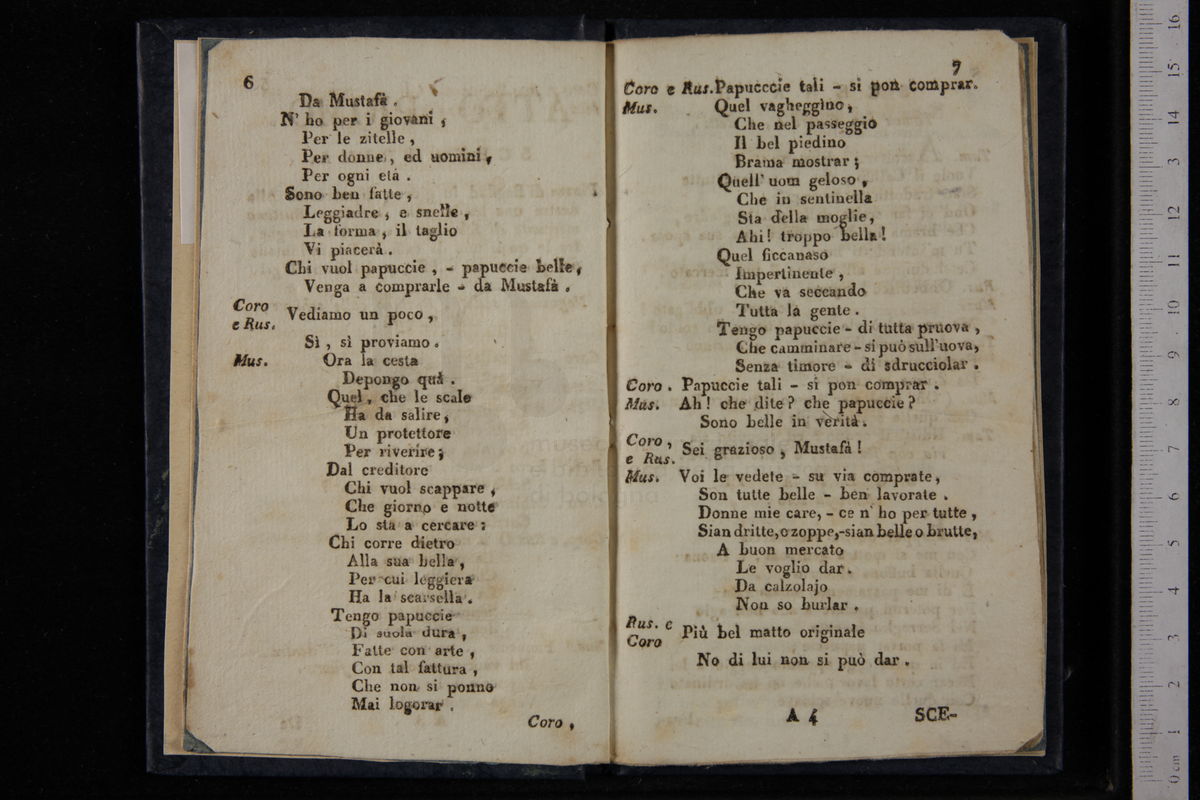 6
Da Mustafà .
N' ho per i giovani ,
Per le zitelle ,
Per donne , ed uomini ,
Per ogni età .
Sono ben fatte ,
Leggiadre , e snelle ,
La forma , il taglio
Vi piacerà .
Chi vuol papuccie , - papuccie belle ,
Venga a comprarle - da Mustafà .
Coro e Rus. Vediamo un poco ,
Sì , sì proviamo .
Mus. Ora la cesta
Depongo quà .
Quel , che le scale
Ha da salire ,
Un protettore
Per riverire ;
Dal creditore
Chi vuol scappare ,
Che giorno e notte
Lo sta a cercare :
Chi corre dietro
Alla sua bella ,
Per cui leggiera
Ha la scarsella .
Tengo papuccie
Di suola dura ,
Fatte con arte ,
Con tal fattura ,
Che non si ponno
Mai logorar .
Coro ,
7
Coro e Rus. Papucccie tali - si pon comprar.
Mus. Quel vagheggino ,
Che nel passeggio
Il bel piedino
Brama mostrar ;
Quell' uom geloso ,
Che in sentinella
Sta della moglie ,
Ahi ! troppo bella !
Quel ficcanaso
Impertinente ,
Che va seccando
Tutta la gente .
Tengo papuccie - di tutta pruova ,
Che camminare - si può sull'uova,
Senza timore - di sdrucciolar .
Coro . Papuccie tali - si pon comprar .
Mus. Ah ! che dite ? che papuccie ?
Sono belle in verità .
Coro , e Rus. Sei grazioso , Mustafà !
Mus. Voi le vedete - su via comprate ,
Son tutte belle - ben lavorate .
Donne mie care, - ce n' ho per tutte ,
Sian dritte, o zoppe,-sian belle o brutte,
A buon mercato
Le voglio dar .
Da calzolajo
Non so burlar .
Rus. e Coro Più bel matto originale
No di lui non si può dar .
A 4
SCE-